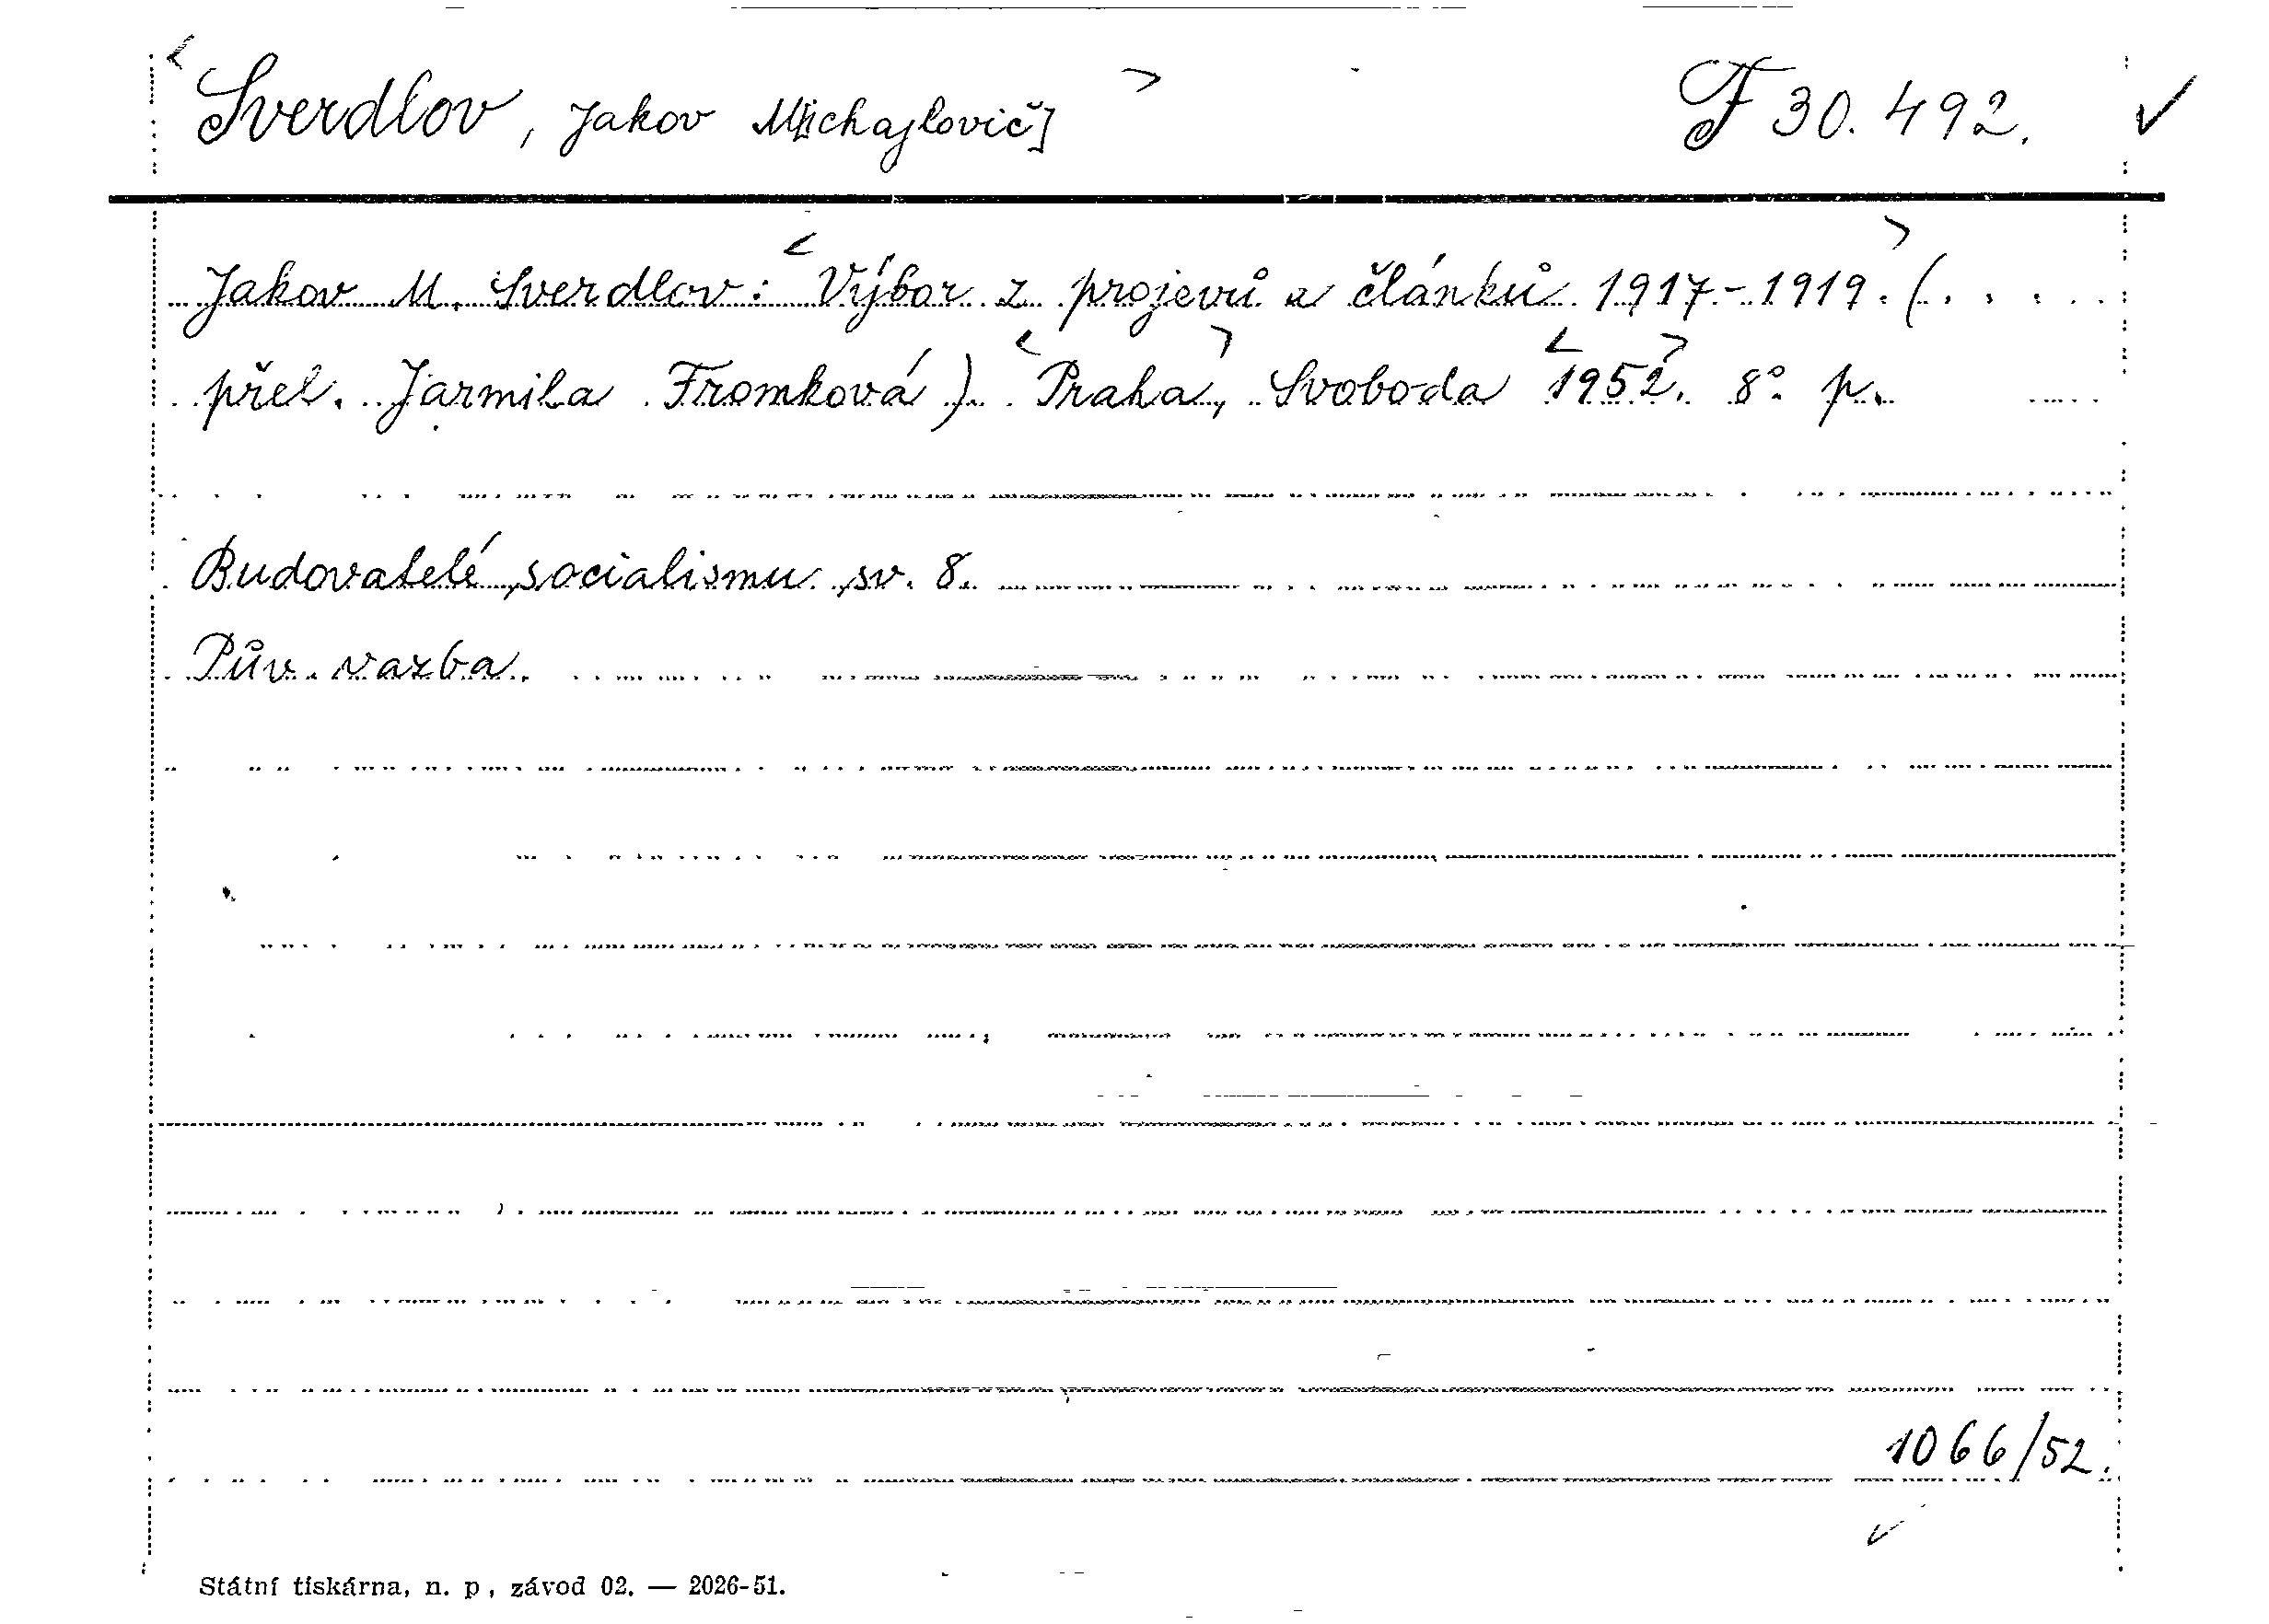 <Sverdlov, Jakov M[ichajlovič]> F 30.492. ✓
Jakov M. Sverdlov: <Výbor z projevů a článků 1917-1919.> (. . . . .
přel. Jarmila Fromková). <Praha>, Svoboda <1952>. 8° p.
Budovatelé socialismu, sv. 8.
Pův. vazba.
1066/52.
✓
Státní tiskárna, n. p., závod 02. — 2026-51.